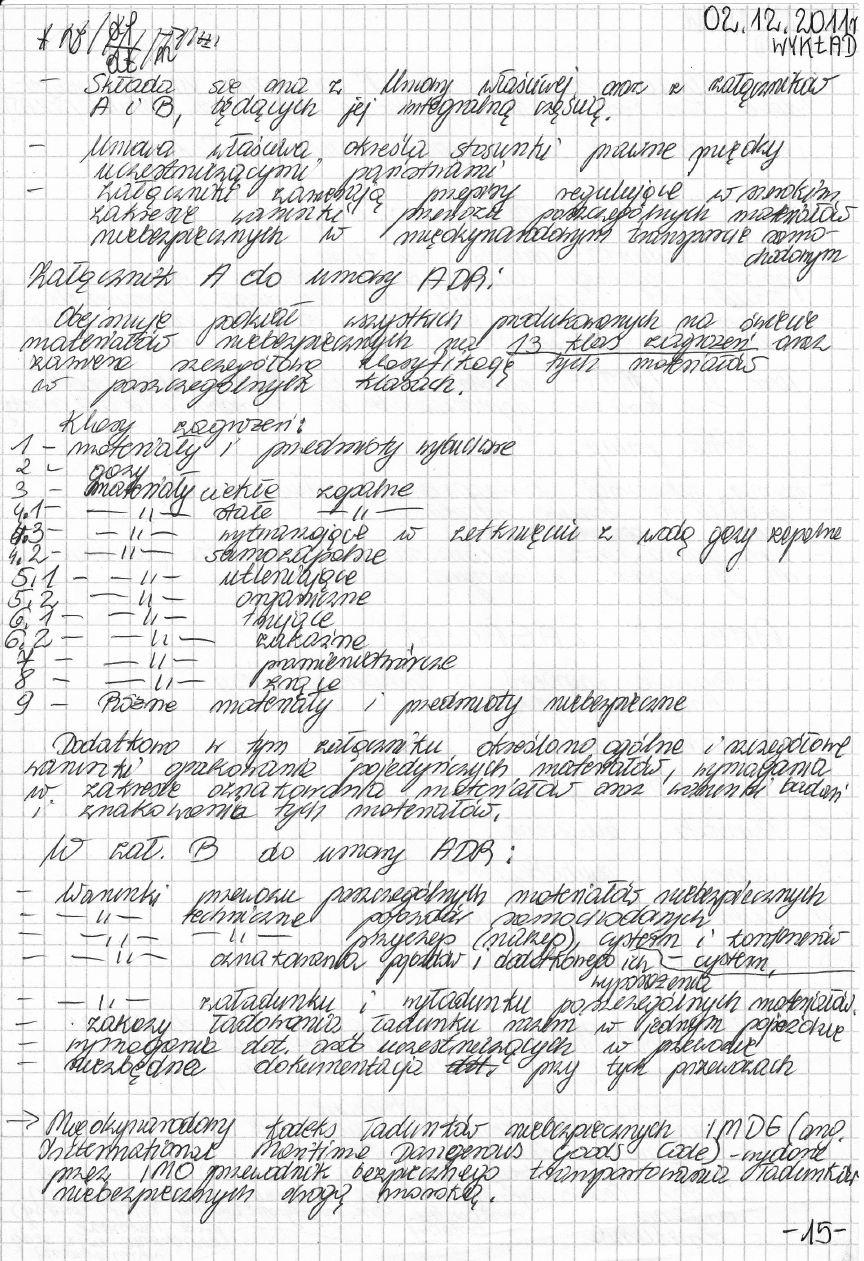 02.12.2011r
WYKŁAD
- Składa się ona z Umowy właściwej oraz z załączników
A i B, będących jej integralną częścią.
- Umowa właściwa określa stosunki prawne między
uczestniczącymi państwami
- załączniki zawierają przepisy regulujące w szerokim
zakresie warunki przewozu poszczególnych materiałów
niebezpiecznych w międzynarodowym transporcie samo-
chodowym
Załącznik A do umowy ADR:
Obejmuje podział wszystkich produkowanych na świecie
materiałów niebezpiecznych na 13 klas zagrożeń oraz
zawiera szczegółową klasyfikację tych materiałów
w poszczególnych klasach.
Klasy zagrożeń:
1 - materiały i przedmioty wybuchowe
2 - gazy
3 - materiały ciekłe zapalne
4.1 - —"— stałe —"—
4.3 - —"— wytwarzające w zetknięciu z wodą gazy zapalne
4.2 - —"— samozapalne
5.1 - —"— utleniające
5.2 —"— organiczne
6.1 - —"— trujące
6.2 - —"— zakaźne
7 - —"— promieniotwórcze
8 - —"— żrące
9 - Różne materiały i przedmioty niebezpieczne
Dodatkowo w tym załączniku określono ogólne i szczegółowe
warunki opakowania pojedyńczych materiałów, wymagania
w zakresie oznakowania materiałów oraz warunki badań
i znakowania tych materiałów.
W zał. B do umowy ADR:
- Warunki przewozu poszczególnych materiałów niebezpiecznych
- —"— techniczne pojazdów samochodowych
- —"— —"— przyczep (naczep), cystern i kontenerów
- —"— oznakowania pojazdów i dodatkowego ich - cystern,
wyposażenia
- —"— załadunku i wyładunku poszczególnych materiałów.
- zakazy ładowania ładunku razem w jednym pojeździe
- wymagania dot. osób uczestniczących w przewozie
- niezbędna dokumentacja przy tych przewozach
→ Międzynarodowy kodeks ładunków niebezpiecznych IMDG (ang.
International Maritime Dangerous Goods Code) - wydany
przez IMO przewodnik bezpiecznego transportowania ładunków
niebezpiecznych drogą morską.
-15-